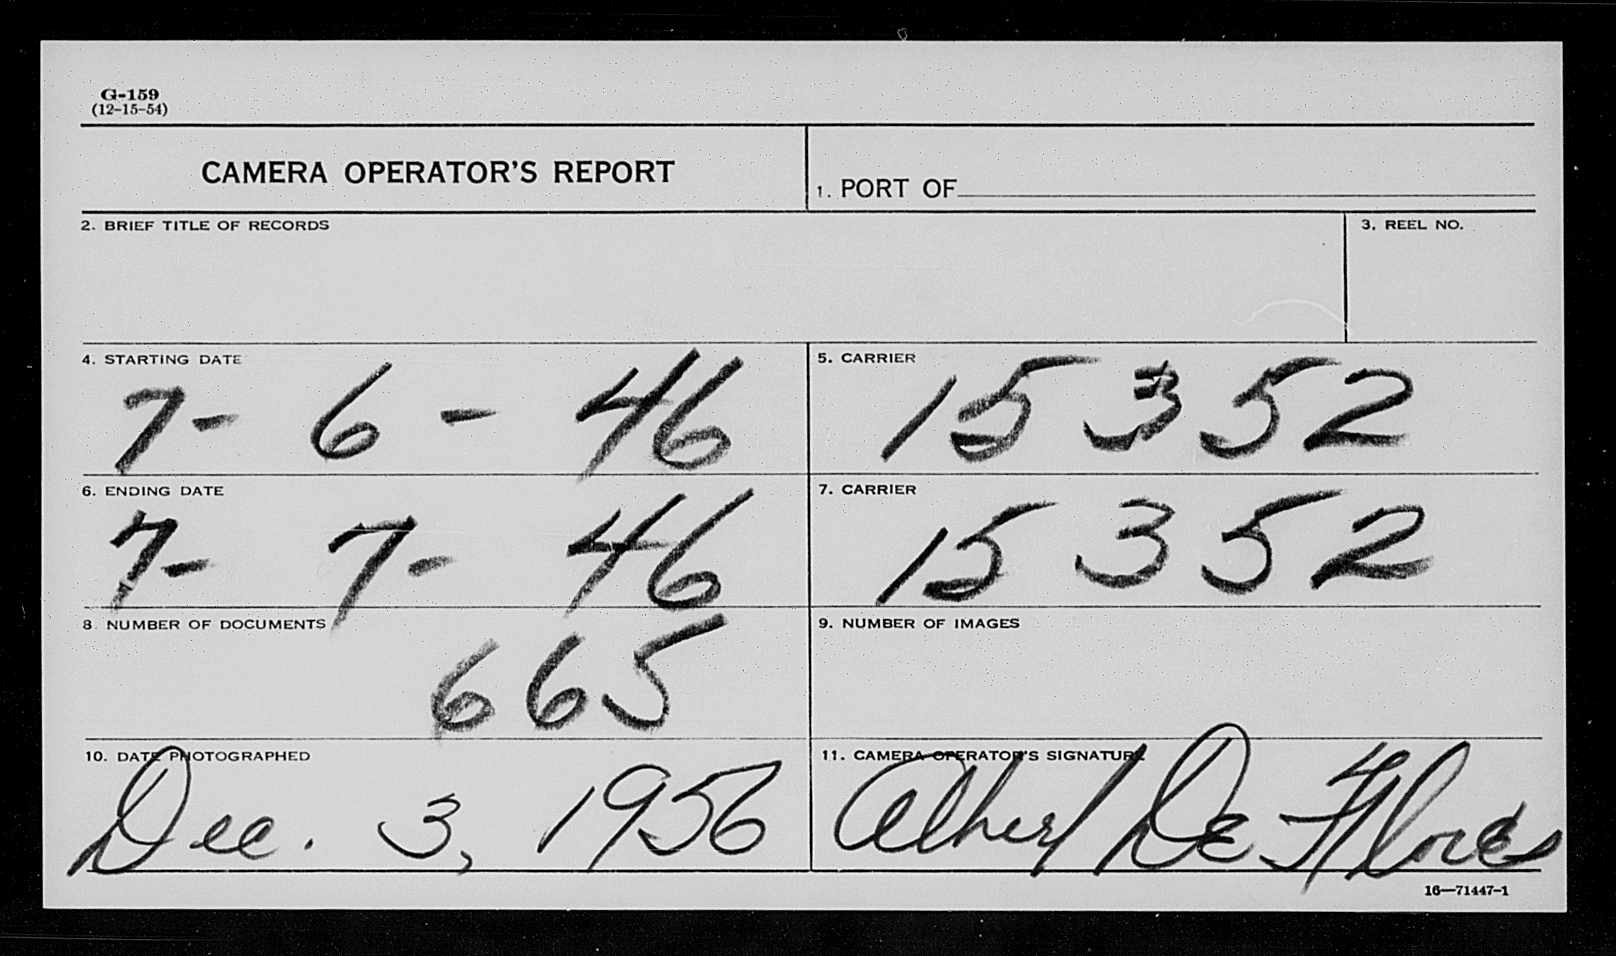 G-159
(12-15-54)
CAMERA OPERATOR'S REPORT
1. PORT OF
2. BRIEF TITLE OF RECORDS
3. REEL NO.
4. STARTING DATE
7- 6 - 46
5. CARRIER
15352
6. ENDING DATE
7- 7- 46
7. CARRIER
15352
8. NUMBER OF DOCUMENTS
665
9. NUMBER OF IMAGES
10. DATE PHOTOGRAPHED
Dec. 3, 1956
11. CAMERA OPERATOR'S SIGNATURE
Albert De Flores
16—71447-1